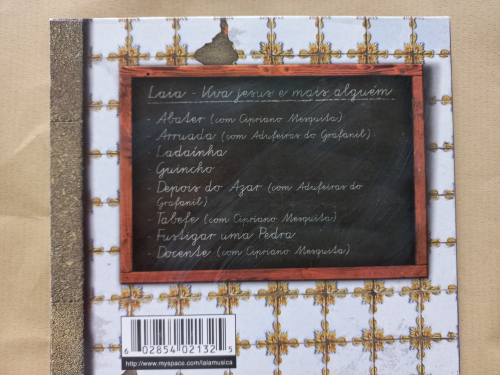 Laia - Viva jesus e mais alguém
- Abater (com Cipriano Mesquita)
- Arruada (com Adufeiras do Grafanil)
- Ladainha
- Guincho
- Depois do Azar (com Adufeiras do
Grafanil)
- Tabefe (com Cipriano Mesquita)
- Fustigar uma Pedra
- Docente (com Cipriano Mesquita)
6 02854 02132 5
http://www.myspace.com/laiamusica